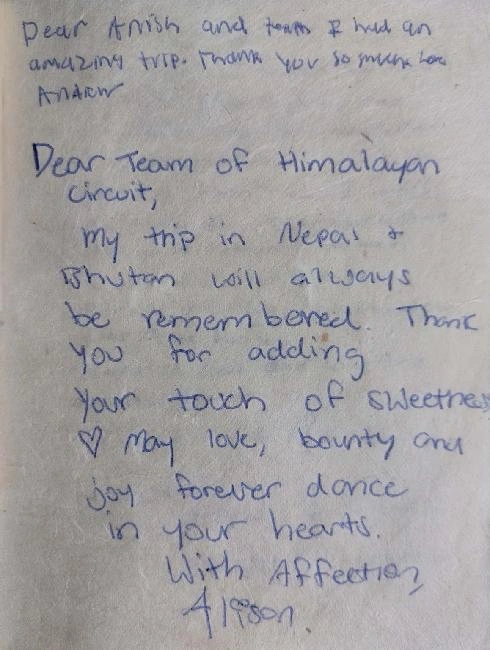 Dear Anish and team I had an
amazing trip. Thank you so much Love
Andrew
Dear Team of Himalayan
Circuit,
My trip in Nepal &
Bhutan will always
be remembered. Thank
you for adding
your touch of sweetness
♡ May love, bounty and
joy forever dance
in your hearts.
With Affection,
Alison